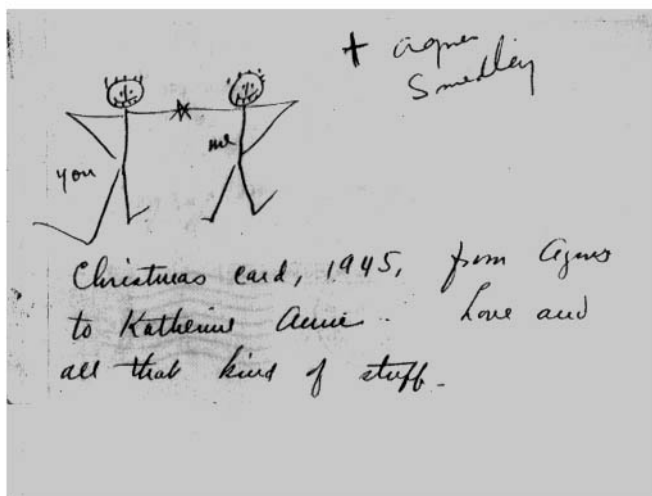 + Agnes
Smedley
me
you
Christmas card, 1945, from Agnes
to Katherine Anne. Love and
all that kind of stuff.